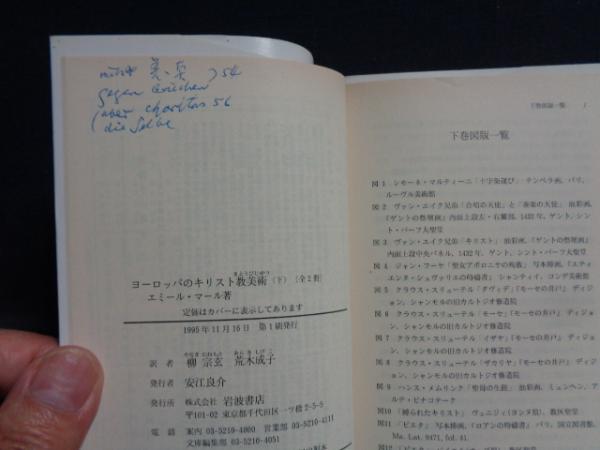 gegen Griechen
(aber charitas 56
die Selbe
ヨーロッパのキリスト教美術(下)〔全2冊〕
エミール・マール著
定価はカバーに表示してあります
1995年11月16日 第1刷発行
訳者 柳宗玄 荒木成子
発行者 安江良介
発行所 株式会社 岩波書店
〒101-02 東京都千代田区一ツ橋2-5-5
電話 案内 03-5210-4000 営業部 03-5210-4111
文庫編集部 03-5210-4051
下巻図版一覧 1
下巻図版一覧
図1 シモーネ・マルティーニ「十字架運び」 テンペラ画,パリ,
ルーヴル美術館
図2 ヴァン・エイク兄弟「合唱の天使」と「奏楽の天使」 油彩画,
『ゲントの祭壇画』内面上段左・右翼部,1432年,ゲント,シン
ト・バーフ大聖堂
図3 ヴァン・エイク兄弟「キリスト」 油彩画,『ゲントの祭壇画』
内面上段中央パネル,1432年,ゲント,シント・バーフ大聖堂
図4 ジャン・フーケ「聖女アポロニヤの殉教」 写本挿画,『エティ
エンヌ・シュヴァリエの時禱書』 シャンティイ,コンデ美術館
図5 クラウス・スリューテル「ダヴィデ」『モーセの井戸』 ディジ
ョン,シャンモルの旧カルトジオ修道院
図6 クラウス・スリューテル「モーセ」『モーセの井戸』 ディジョ
ン,シャンモルの旧カルトジオ修道院
図7 クラウス・スリューテル「イザヤ」『モーセの井戸』 ディジョ
ン,シャンモルの旧カルトジオ修道院
図8 クラウス・スリューテル「ザカリヤ」『モーセの井戸』 ディジ
ョン,シャンモルの旧カルトジオ修道院
図9 ハンス・メムリンク「聖母の生涯」 油彩画,ミュンヘン,ア
ルテ・ピナコテーク
図10 「縛られたキリスト」 ヴェニジィ(ヨンヌ県),教区聖堂
図11 「ピエタ」 写本挿画,『ロアンの時禱書』 パリ,国立図書館,
Ms. Lat. 9471, fol. 41.